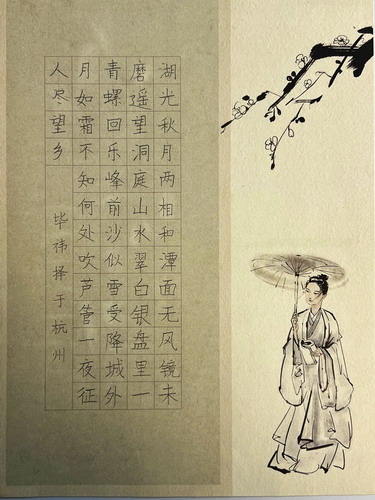 湖光秋月两相和潭面无风镜未
磨遥望洞庭山水翠白银盘里一
青螺回乐峰前沙似雪受降城外
月如霜不知何处吹芦管一夜征
人尽望乡
毕祎择于杭州